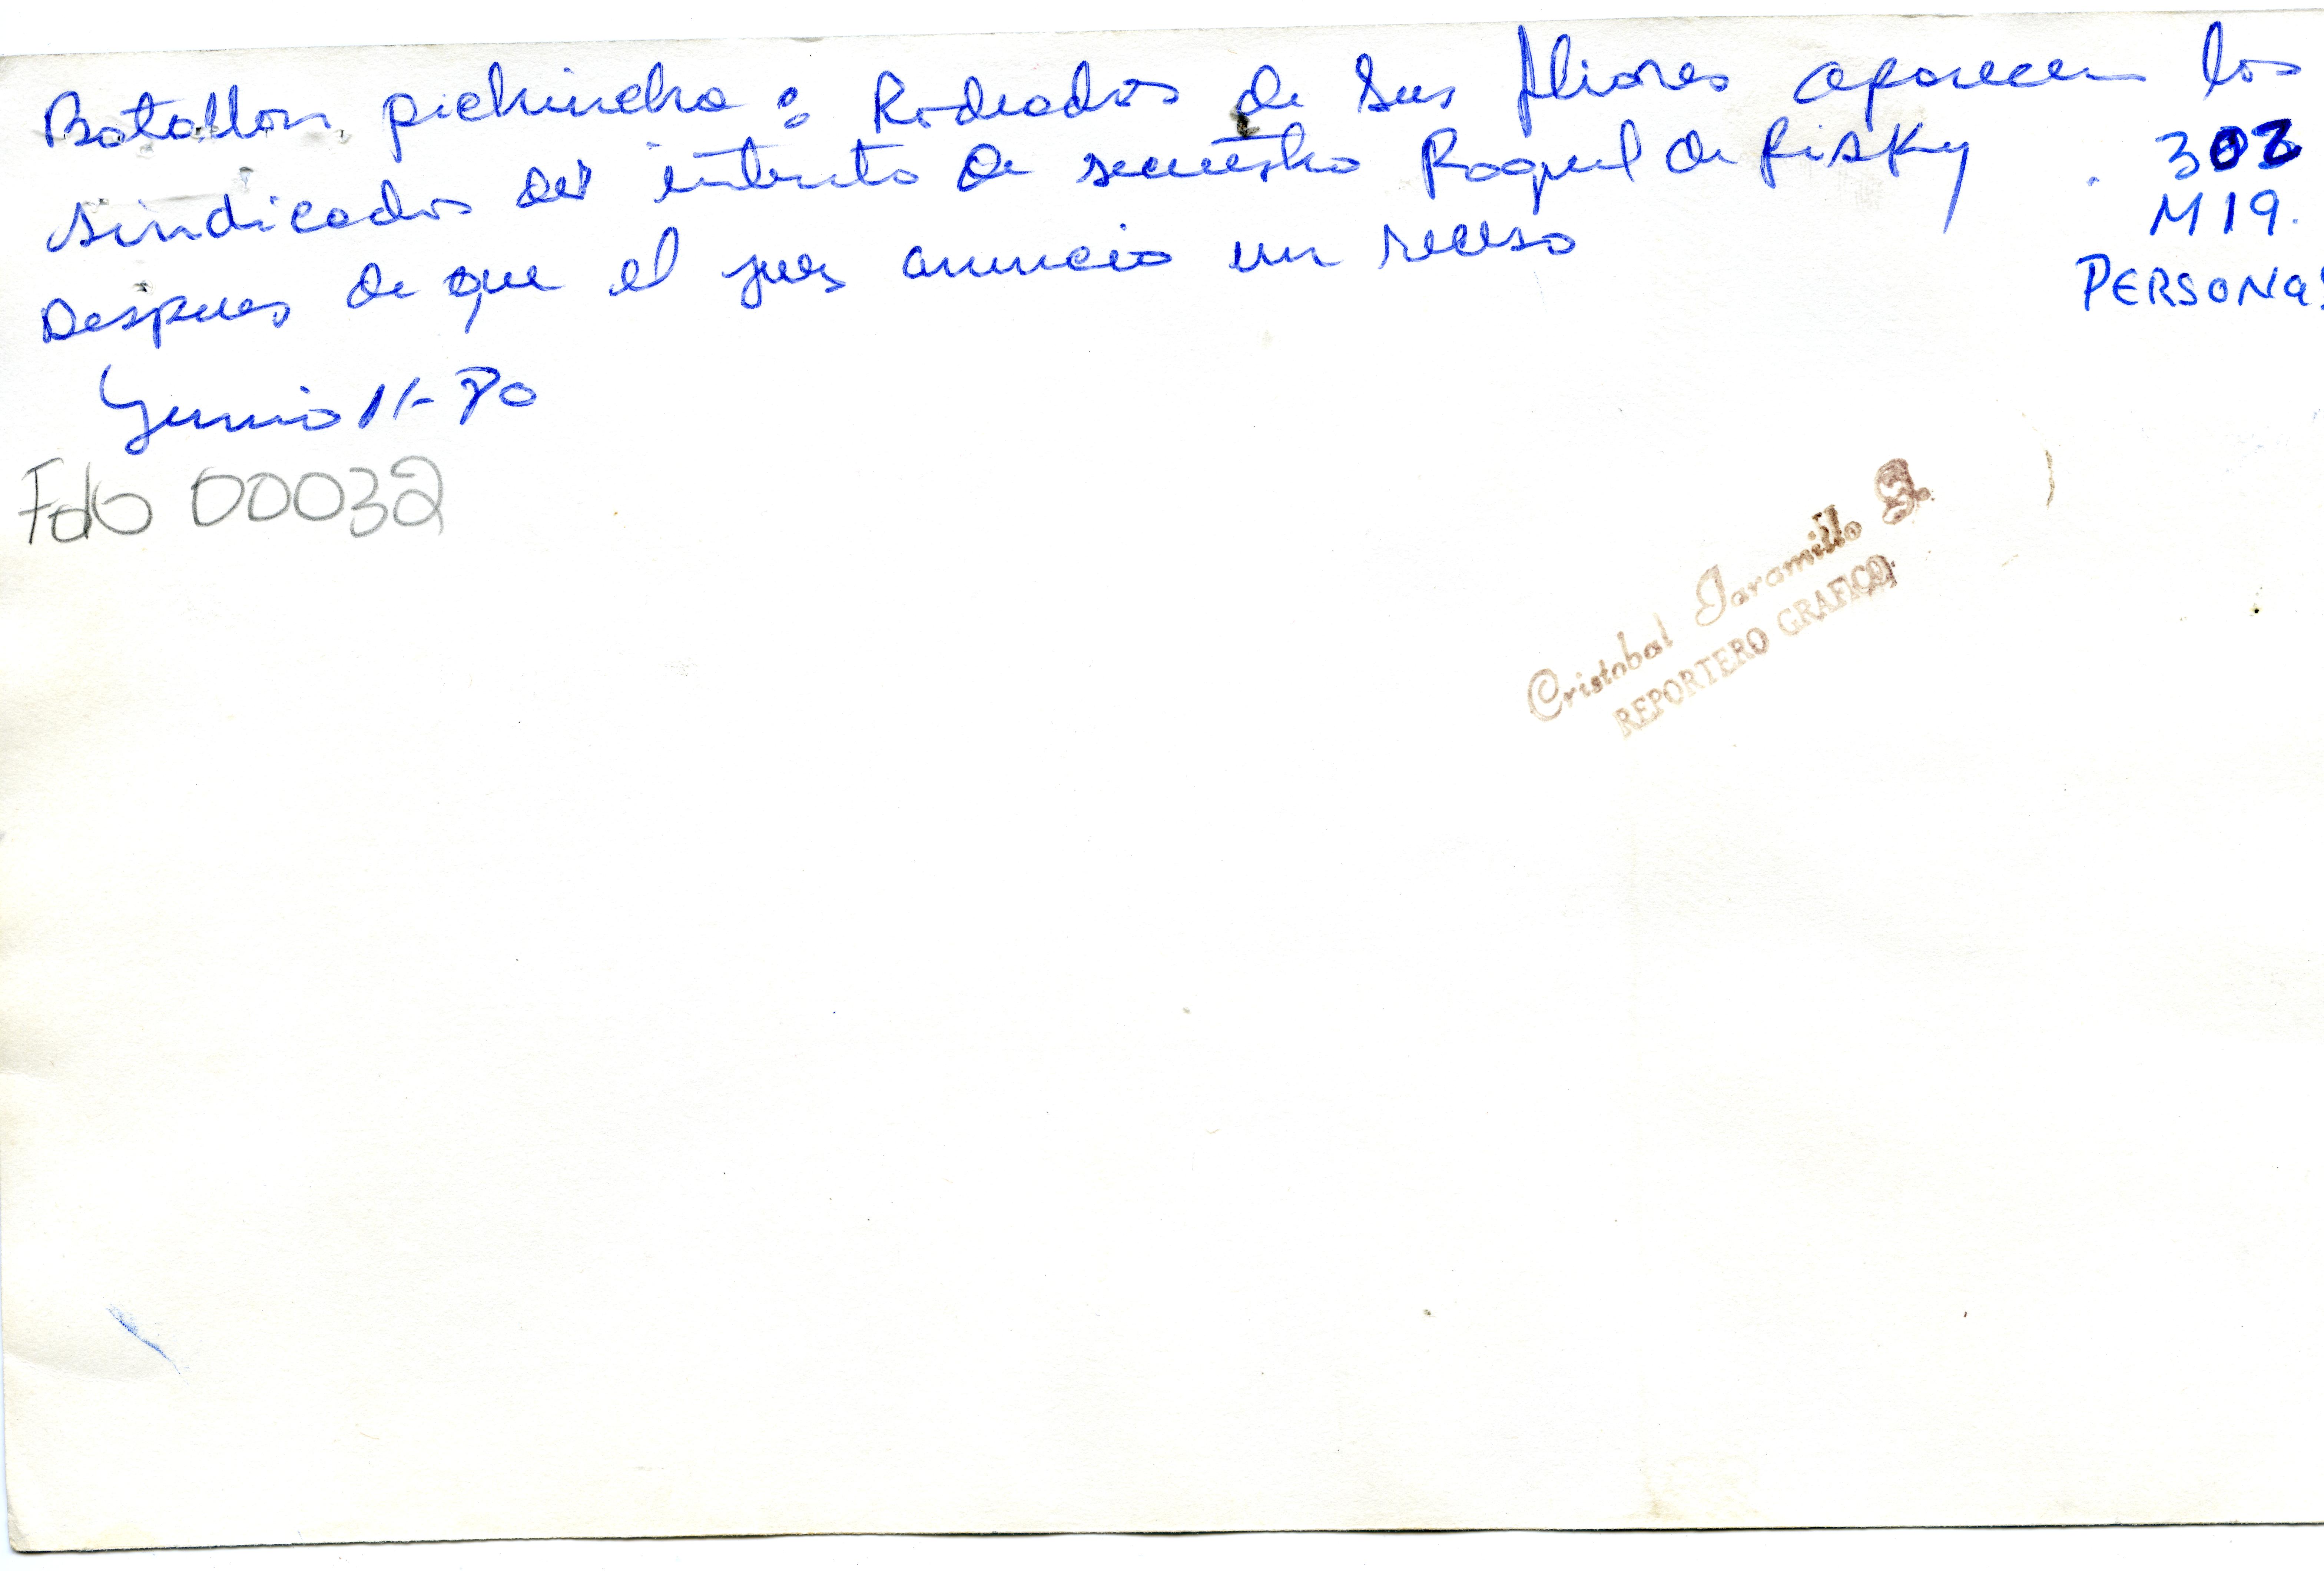 Batallon pichincha : Rodeados de sus aparecen los
sindicados del intento de secuestro Raquel de Fisky
Despues de que el juez anuncio un receso
302
M19.
PERSONAS
Junio 11-80
Fdo 00032
Cristobal Jaramillo G.
REPORTERO GRAFICO